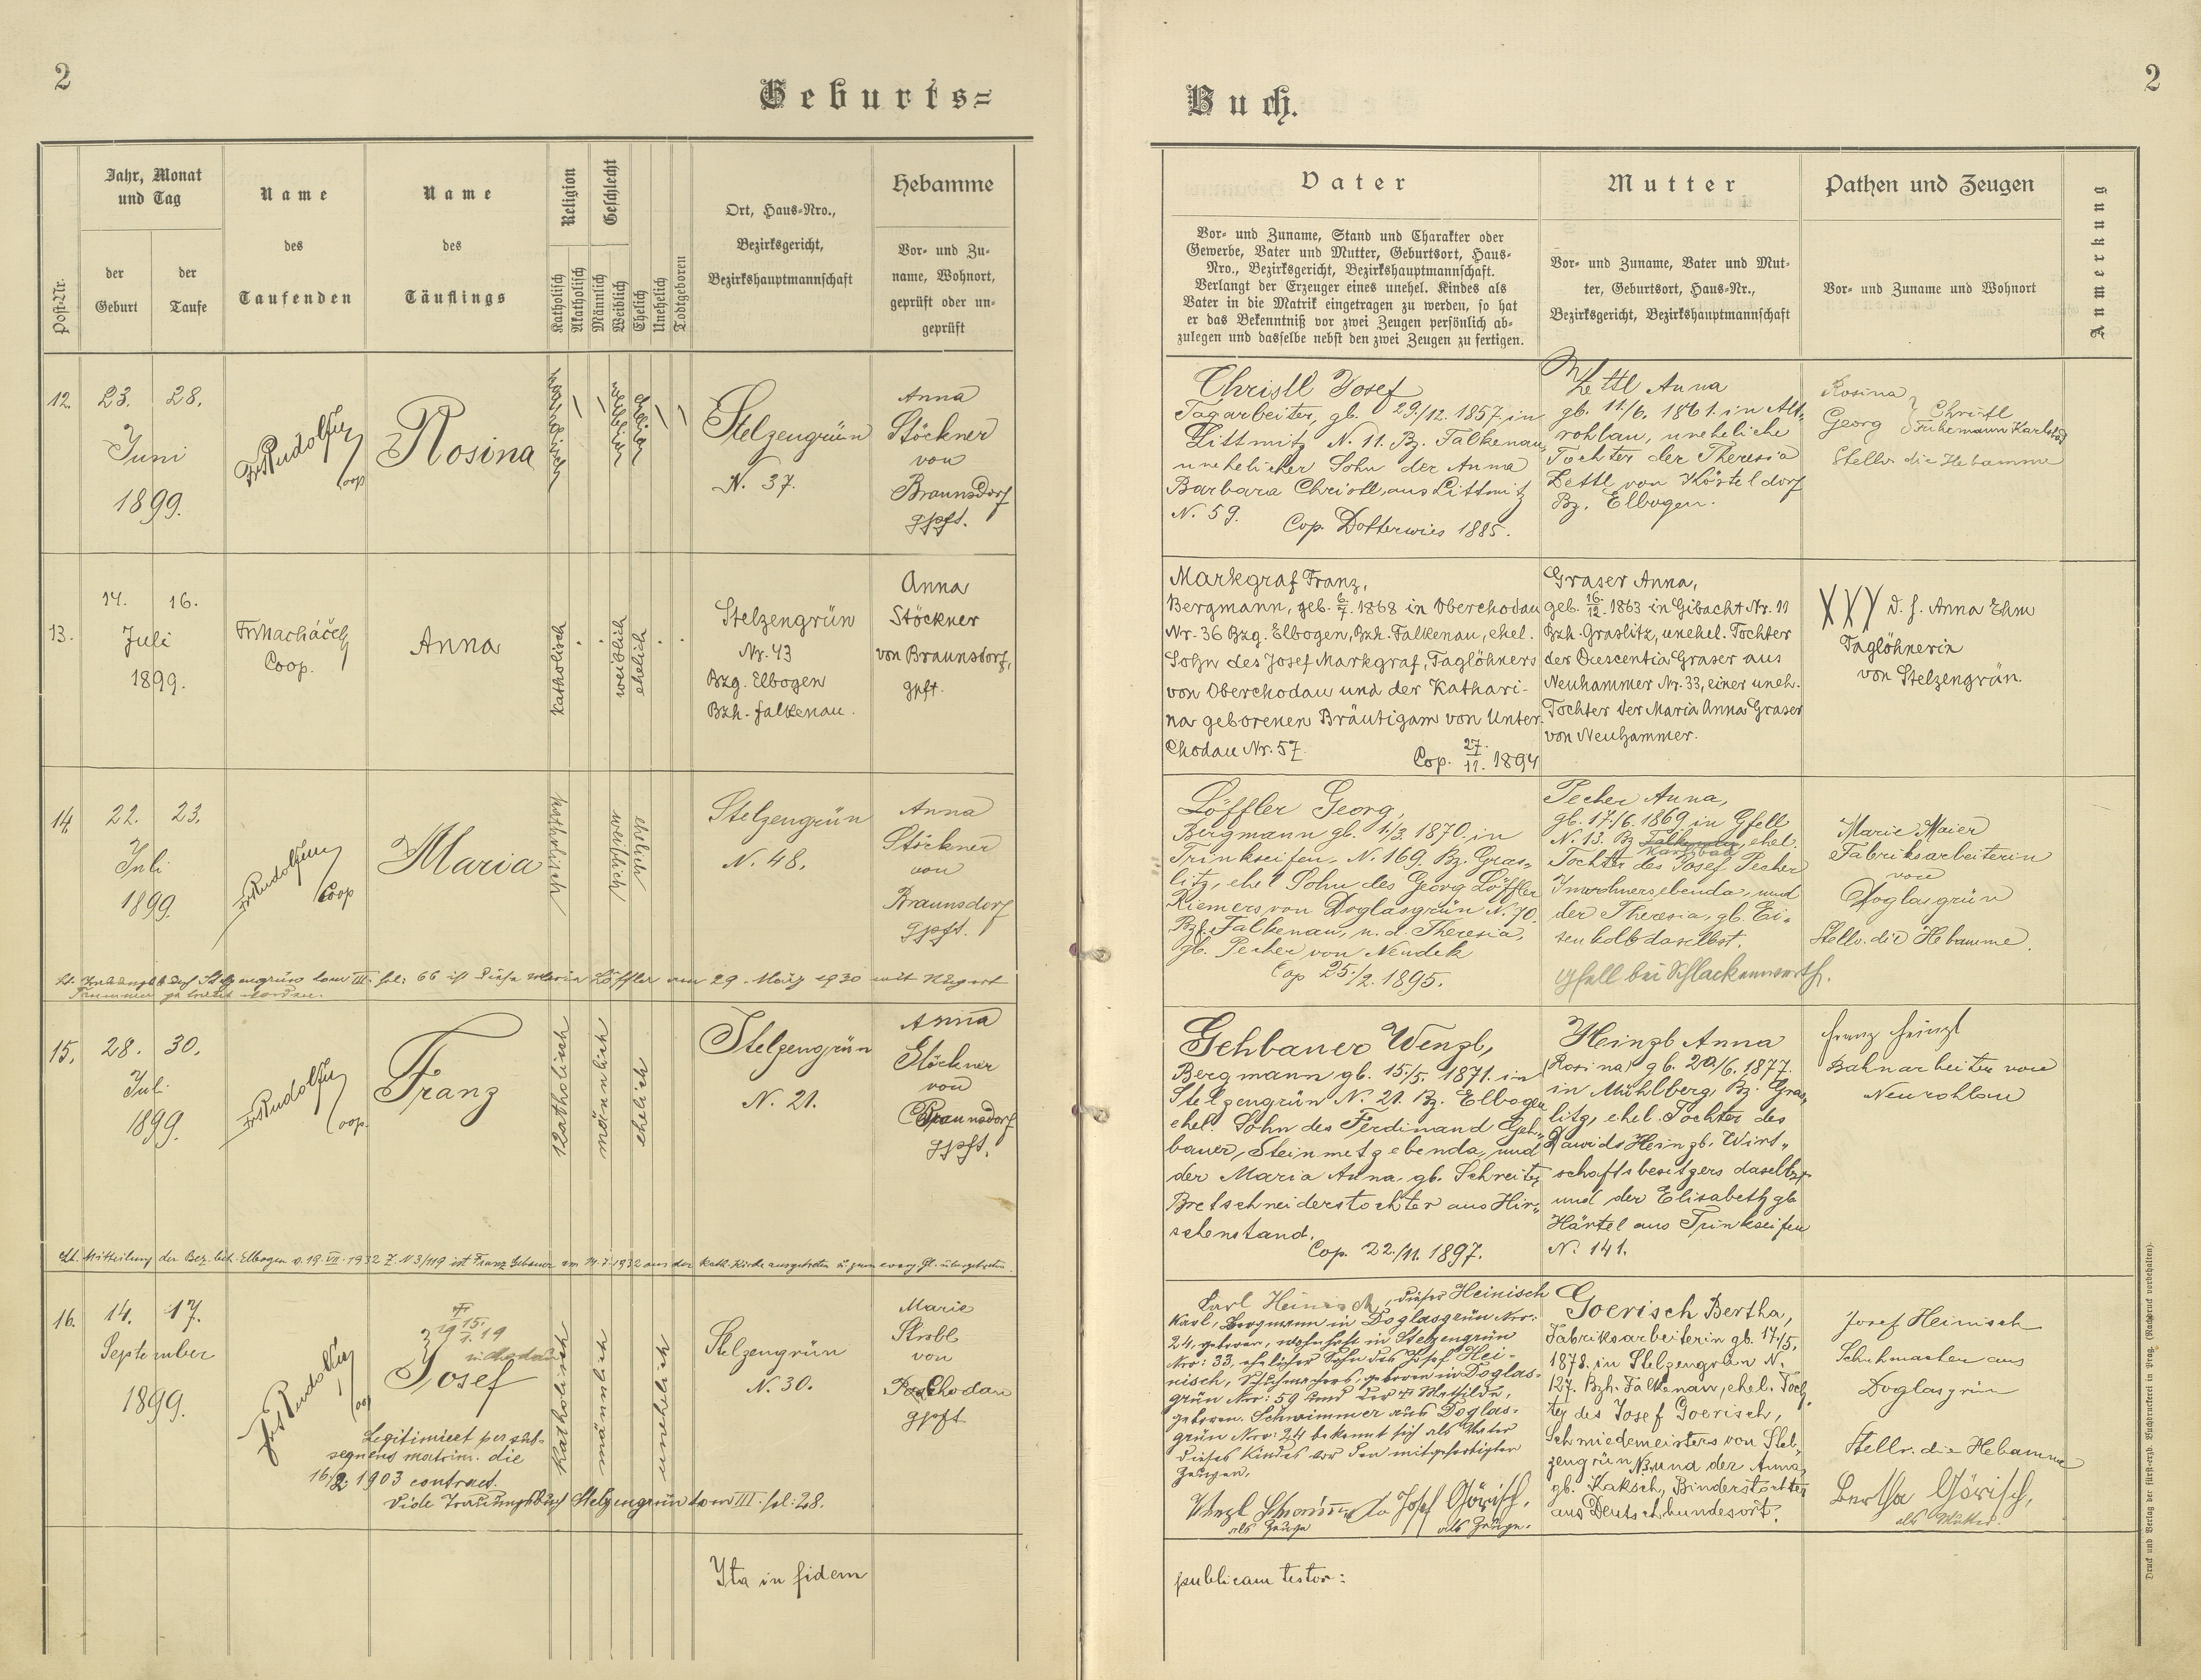 2
Geburts=
Post-Nr.
Jahr, Monat
und Tag
der
Geburt
der
Taufe
Name
des
Taufenden
Name
des
Täuflings
Religion
Katholisch
Akatholisch
Geschlecht
Männlich
Weiblich
Ehelich
Unehelich
Todtgeboren
Ort, Haus-Nro.,
Bezirksgericht,
Bezirkshauptmannschaft
Hebamme
Vor- und Zu-
name, Wohnort,
geprüft oder un-
geprüft
12.
23. 28.
Juni
1899.
Fr. Rudolf
Coop
Rosina
katholisch
weiblich
ehelich
Stelzengrün
N. 37.
Anna
Stöckner
von
Braunsdorf
gpft.
13.
14. 16.
Juli
1899.
Fr. Macháček
Coop.
Anna
katholisch
weiblich
ehelich
Stelzengrün
Nr. 43
Bzg. Elbogen
Bzh. Falkenau.
Anna
Stöckner
von Braunsdorf,
gpft.
14.
22. 23.
Juli
1899.
Coop
Maria
katholisch
weiblich
ehelich
Stelzengrün
N. 48.
Anna
Stöckner
von
Braunsdorf
gpft.
Stelzengrün tom III. fol: 66 ist diese Maria Löffler am 29. März 1930 mit
15.
28. 30.
Juli
1899.
Coop.
Franz
katholisch
männlich
ehelich
Stelzengrün
N. 21.
Anna
Stöckner
von
Braunsdorf
gpft.
Lt. Mitteilung der Bez. beh. Elbogen v. 19. VII. 1932 Z. N 3/119 ist Franz Gebauer am 14. 7. 1932 aus der kath. Kirche ausgetreten u. zum evang. Gl. übergetreten.
16.
14. 17.
September
1899.
Josef
Legitimiert per sub-
sequens matrim. die
16/2. 1903 contract.
Vide Trauungsbuch Stelzengrün tom III. fol: 28.
katholisch
männlich
unehelich
Stelzengrün
N. 30.
Marie
Strobl
von
Chodau
gpft
Ita in fidem
Buch.
2
Vater
Vor- und Zuname, Stand und Charakter oder
Gewerbe, Vater und Mutter, Geburtsort, Haus-
Nro., Bezirksgericht, Bezirkshauptmannschaft.
Verlangt der Erzeuger eines unehel. Kindes als
Vater in die Matrik eingetragen zu werden, so hat
er das Bekenntniß vor zwei Zeugen persönlich ab-
zulegen und dasselbe nebst den zwei Zeugen zu fertigen.
Mutter
Vor- und Zuname, Vater und Mut-
ter, Geburtsort, Haus-Nr.,
Bezirksgericht, Bezirkshauptmannschaft
Pathen und Zeugen
Vor- und Zuname und Wohnort
Anmerkung
Christl Josef
Tagarbeiter, gb. 29./12. 1857. in
Littmitz N. 11. Bz. Falkenau,
unehelicher Sohn der Anna
Barbara Christl, aus Littmitz
N. 59.
Cop. Dotterwies 1885.
Zettl Anna
gb. 11/6. 1861. in Alt-
rohlau, uneheliche
Tochter der Theresia
Zettl von Kösteldorf
Bz. Elbogen.
Rosina
Georg
Christl
Fuhrmann Karlsbad
Stellv. die Hebamme
Markgraf Franz,
Bergmann, geb. 6/7. 1868 in Oberchodau
Nr. 36 Bzg. Elbogen, Bzh. Falkenau, ehel.
Sohn des Josef Markgraf, Taglöhners
von Oberchodau und der Kathari-
na geborenen Bräutigam von Unter-
chodau Nr. 57.
Cop. 27./11. 1894
Graser Anna,
geb. 16./12. 1863 in Gibacht Nr. 11
Bzh. Graslitz, unehel. Tochter
der Crescentia Graser aus
Neuhammer Nr. 33, einer uneh.
Tochter der Maria Anna Graser
von Neuhammer.
XXX d. h. Anna Ehm
Taglöhnerin
von Stelzengrün.
Löffler Georg,
Bergmann gb. 1/3 1870. in
Trinkseifen, N. 169. Bz. Gras-
litz, ehel. Sohn des Georg Löffler
Riemers von Doglasgrün N. 70.
Bz. Falkenau, u. d. Theresia,
gb. Pecher von Neudek
Cop 25./2. 1895.
Pecher Anna,
gb. 17./6. 1869 in Gfell
N. 13. Bz Falkenau, ehel.
Karlsbad
Tochter des Josef Pecher
Inwohners ebenda, und
der Theresia, gb. Ei-
senkolb daselbst.
Gfell bei Schlackenwerth.
Marie Maier
Fabriksarbeiterin
von
Doglasgrün
Stellv. die Hebamme.
Gehbauer Wenzl,
Bergmann gb. 15./5. 1871. in
Stelzengrün N. 21. Bz. Elbogen
ehel. Sohn des Ferdinand Geh-
bauer, Steinmetz ebenda, und
der Maria Anna, gb. Schreiter
Bretschneiderstochter aus Hir-
schenstand.
Cop. 22./11. 1897.
Heinzl Anna
(Rosina) gb. 20/6. 1877.
in Mühlberg, Bz. Gras-
litz, ehel. Tochter des
Dawids Heinzl, Wirt-
schaftsbesitzers daselbst
und der Elisabeth gb
Härtel aus Trinkseifen
N. 141.
Franz Heinzl
Bahnarbeiter von
Neurohlau
Karl Heinisch, dieser Heinisch
Karl, Bergmann in Doglasgrün Nro:
24, geboren, wohnhaft in Stelzengrün
Nro: 33, ehelicher Sohn des Josef Hei-
nisch, Schuhmachers, geboren in Doglas-
grün Nro: 59 und der Mathilde,
geboren. Schwimmer aus Doglas-
grün Nro: 24 bekennt sich als Vater
dieses Kindes vor den mitgefertigten
Zeugen.
Wenzl
als Zeuge
Josef Görisch,
als Zeuge.
Goerisch Bertha,
Fabriksarbeiterin gb. 17./5.
1878. in Stelzengrün N.
127. Bzh. Falkenau, ehel. Toch-
ter des Josef Goerisch,
Schmiedemeisters von Stel-
zengrün und der Anna,
gb. Kaksch, Binderstochter
aus Deutschhundesort.
Josef Heinisch
Schuhmacher aus
Doglasgrün
Stellv. die Hebamme
Bertha Görisch,
als Mutter.
publicam testor:
Druck und Verlag der fürst-erzb. Buchdruckerei in Prag. (Nachdruck vorbehalten).